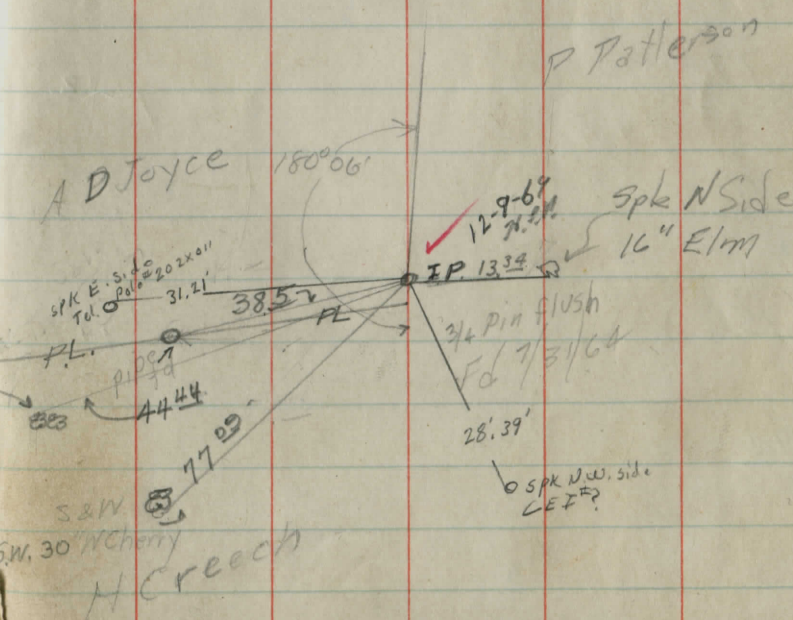 P Patterson
A D Joyce
180°06'
12-9-69
Spk N Side
16" Elm
spk E. Side
Tel. Pole # 202x011
31.21'
38.5
I.P. 13.34
PL
P.L.
3/4 pin flush
Fd 7/31/64
pipe
fd
44 44
77 09
28'.39'
spk N.W. side
CEI #?
S & W
S.W. 30" W Cherry
H Creech